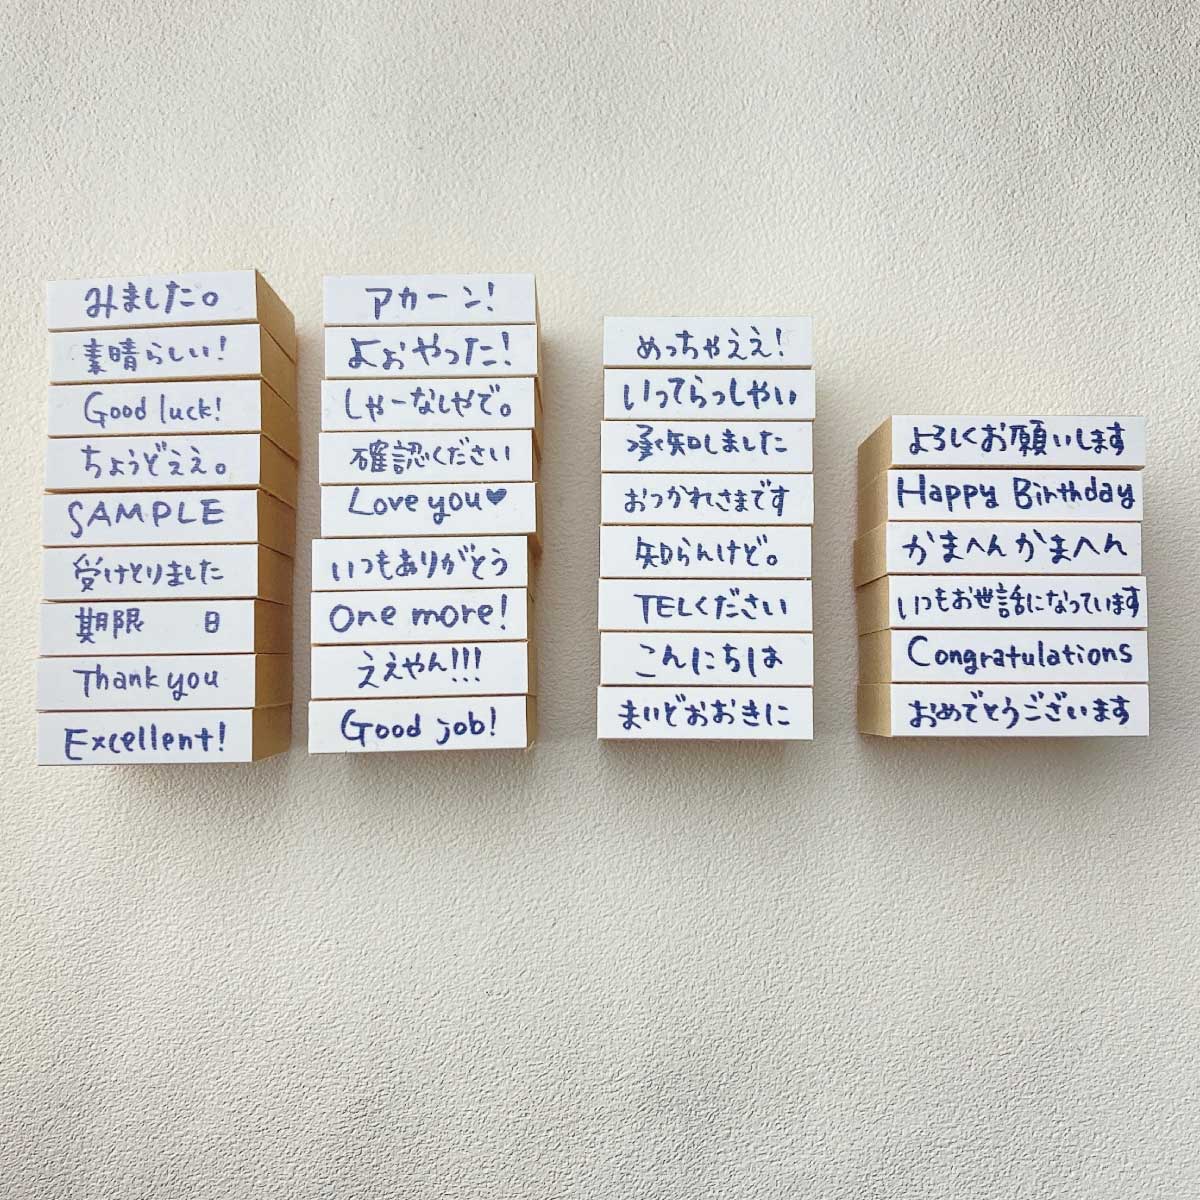 みました。
素晴らしい!
Good luck!
ちょうどええ。
SAMPLE
受けとりました
期限 日
Thank you
Excellent!
アカーン!
よぉやった!
しゃーなしやで。
確認ください
Love you♥
いつもありがとう
One more!
ええやん!!!
Good job!
めっちゃええ!
いってらっしゃい
承知しました
おつかれさまです
知らんけど。
TELください
こんにちは
まいどおおきに
よろしくお願いします
Happy Birthday
かまへんかまへん
いつもお世話になっています
Congratulations
おめでとうございます